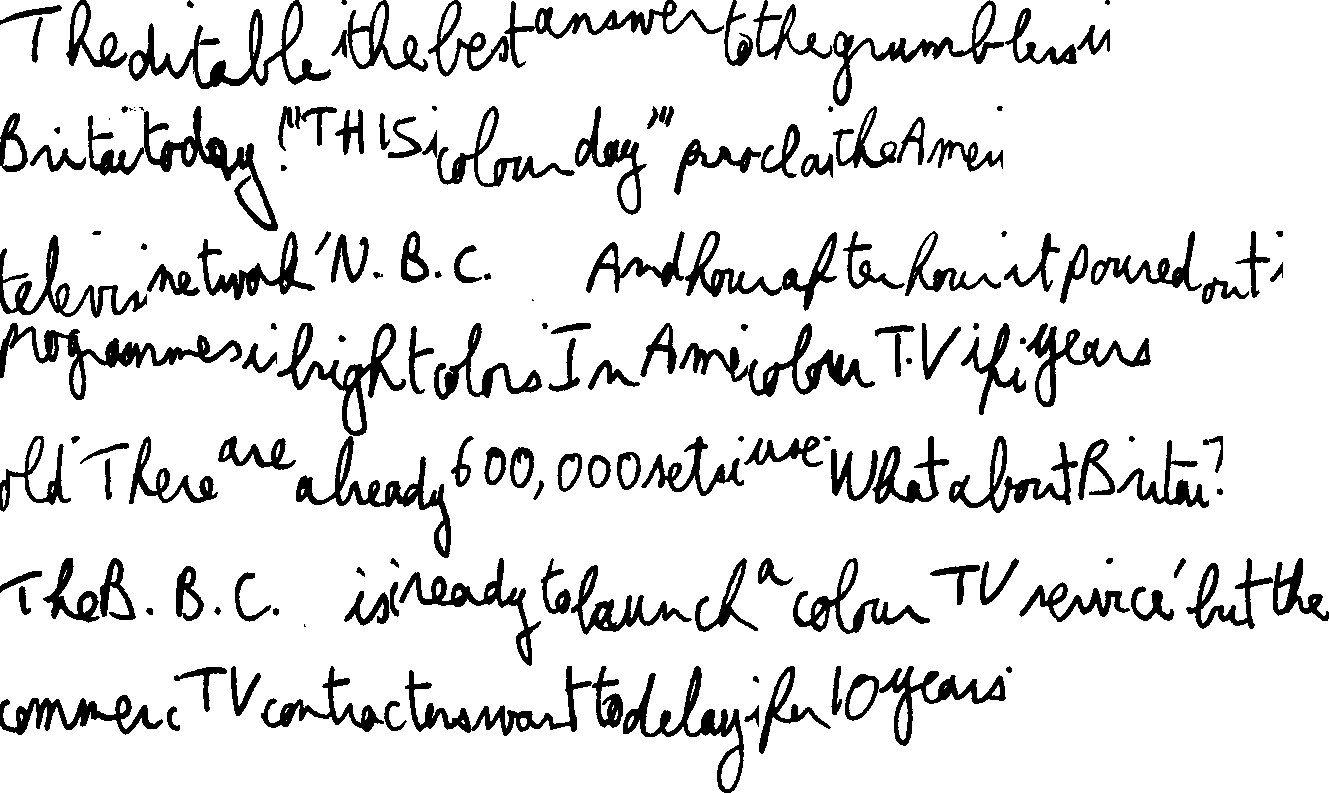 The ditable is the best answer to the grumblers in
Britain today! "THIS is colour day," proclaim the Ameri
televis network, N.B.C. And hour after hour it poured out i
programmes in bright colors. In Ameri colour T.V is fi years
old. There are already 600,000 sets in use. What about Britain?
The B.B.C. is ready to launch a colour TV service, but the
commerc TV contractors want to delay it for 10 years